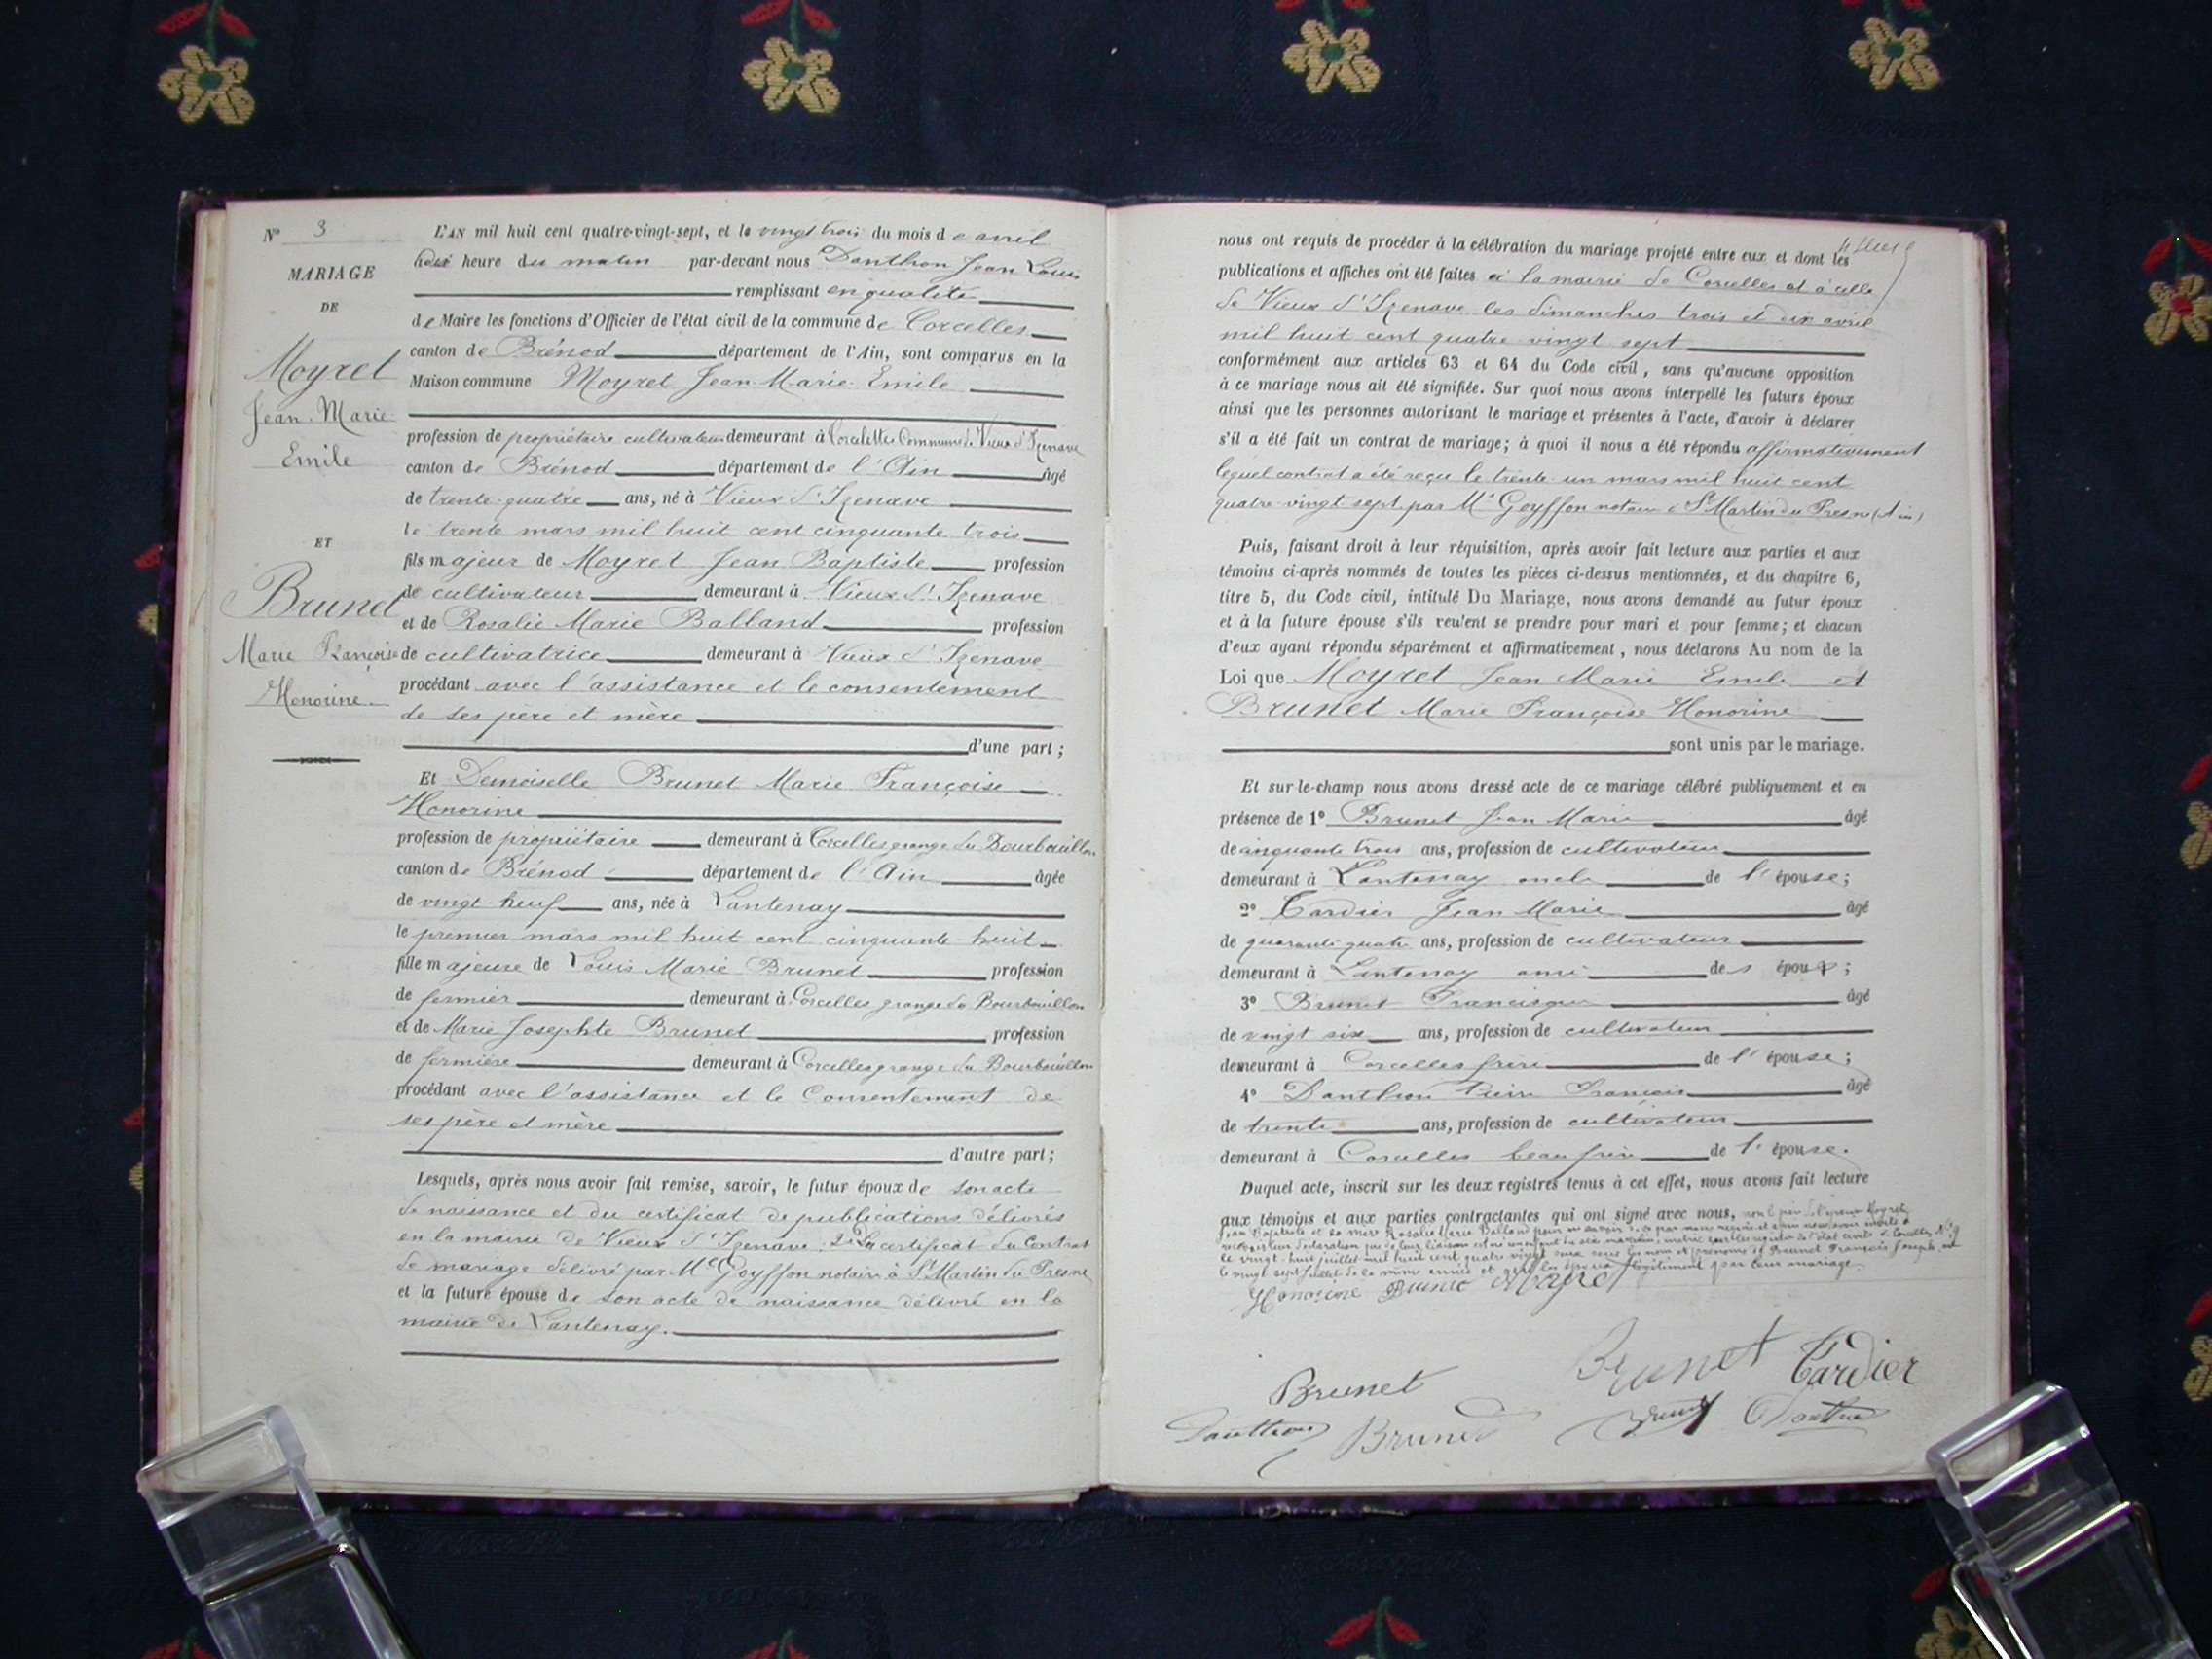 N° 3
MARIAGE
DE
Moyret
Jean-Marie-
Emile
ET
Brunet
Marie Françoise
Honorine
L'AN mil huit cent quatre-vingt-sept, et le vingt trois du mois de avril
heure du matin par-devant nous Danthon Jean Louis
remplissant en qualité
de Maire les fonctions d'Officier de l'état civil de la commune de Corcelles
canton de Brénod département de l'Ain, sont comparus en la
Maison commune Moyret Jean-Marie-Emile
profession de propriétaire cultivateur demeurant à Corcelettes Commune de Vieux d'Izenave
canton de Brénod département de l'Ain âgé
de trente-quatre ans, né à Vieux d'Izenave
le trente mars mil huit cent cinquante trois
fils majeur de Moyret Jean Baptiste profession
de cultivateur demeurant à Vieux d'Izenave
et de Rosalie Marie Balland profession
de cultivatrice demeurant à Vieux d'Izenave
procédant avec l'assistance et le consentement
de ses père et mère
d'une part ;
Et Demoiselle Brunet Marie Françoise
Honorine
profession de propriétaire demeurant à Corcelles grange du Bourbouillon
canton de Brénod département de l'Ain âgée
de vingt-neuf ans, née à Lantenay
le premier mars mil huit cent cinquante-huit
fille majeure de Louis Marie Brunet profession
de fermier demeurant à Corcelles grange du Bourbouillon
et de Marie Josephte Brunet profession
de fermière demeurant à Corcelles grange du Bourbouillon
procédant avec l'assistance et le Consentement de
ses père et mère
d'autre part ;
Lesquels, après nous avoir fait remise, savoir, le futur époux de son acte
de naissance et du certificat de publications délivrés
en la mairie de Vieux d'Izenave. 2° du certificat du Contrat
de mariage délivré par Me Goyffon notaire à St Martin du Fresne
et la future épouse de son acte de naissance délivré en la
mairie de Lantenay.
nous ont requis de procéder à la célébration du mariage projeté entre eux et dont les
publications et affiches ont été faites à la mairie de Corcelles et à celle
de Vieux d'Izenave les dimanches trois et dix avril
mil huit cent quatre vingt sept
conformément aux articles 63 et 64 du Code civil, sans qu'aucune opposition
à ce mariage nous ait été signifiée. Sur quoi nous avons interpellé les futurs époux
ainsi que les personnes autorisant le mariage et présentes à l'acte, d'avoir à déclarer
s'il a été fait un contrat de mariage; à quoi il nous a été répondu affirmativement
lequel contrat a été reçu le trente-un mars mil huit cent
quatre-vingt sept par Me Goyffon notaire à St Martin du Fresne (Ain)
Puis, faisant droit à leur réquisition, après avoir fait lecture aux parties et aux
témoins ci-après nommés de toutes les pièces ci-dessus mentionnées, et du chapitre 6,
titre 5, du Code civil, intitulé Du Mariage, nous avons demandé au futur époux
et à la future épouse s'ils veulent se prendre pour mari et pour femme; et chacun
d'eux ayant répondu séparément et affirmativement, nous déclarons Au nom de la
Loi que Moyret Jean Marie Emile et
Brunet Marie Françoise Honorine
sont unis par le mariage.
Et sur-le-champ nous avons dressé acte de ce mariage célébré publiquement et en
présence de 1° Brunet Jean Marie âgé
de cinquante trois ans, profession de cultivateur
demeurant à Lantenay oncle de l'épouse;
2° Cardier Jean Marie âgé
de quarante quatre ans, profession de cultivateur
demeurant à Lantenay ami des époux;
3° Brunet Francisque âgé
de vingt six ans, profession de cultivateur
demeurant à Corcelles frère de l'épouse;
4° Danthon Pierre François âgé
de trente ans, profession de cultivateur
demeurant à Corcelles beau frère de l'épouse.
Duquel acte, inscrit sur les deux registres tenus à cet effet, nous avons fait lecture
aux témoins et aux parties contractantes qui ont signé avec nous, non le père de l'époux Moyret
Jean Baptiste et sa mère Rosalie Marie Balland pour ne savoir de ce par nous requis et
leur déclaration que de leur liaison est né un enfant du sexe masculin, inscrit sur les registres de l'état civil de Corcelles N° 9
le vingt-huit juillet mil huit cent quatre vingt sous le nom et prénoms de Brunet François Joseph né
le vingt sept juillet de la même année et légitiment par leur mariage.
Honorine Brunet Moyret
Brunet Cardier
Brunet
Danthon Brunet Brunet Danthon